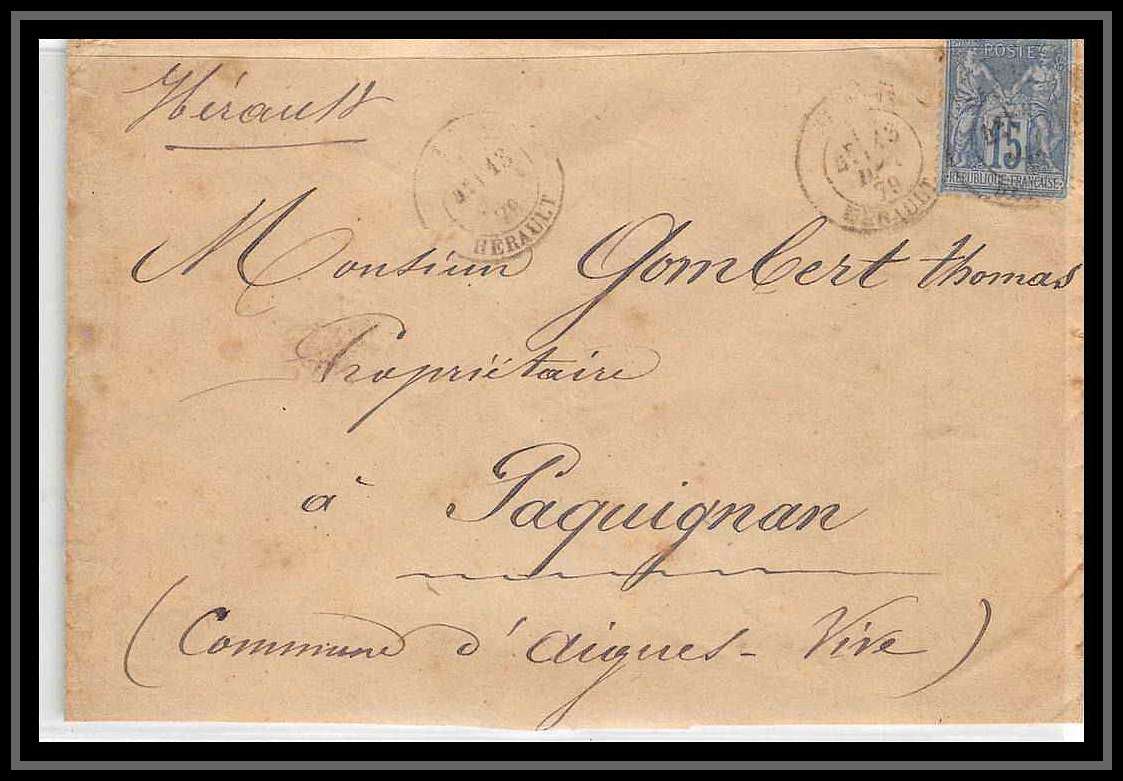 Hérault
POSTES
15
REPUBLIQUE FRANÇAISE
13
79
HÉRAULT
13
79
HÉRAULT
Monsieur Gombert Thomas
Propriétaire
à Paguignan
(Commune d'Aigues-Vive)